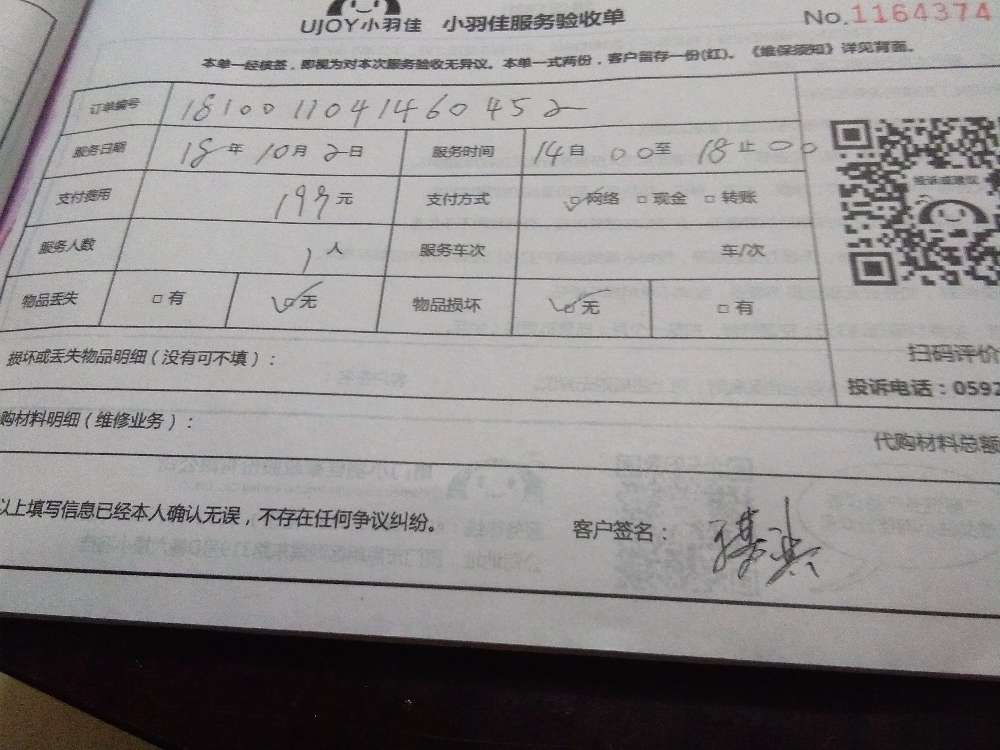 UJOY小羽佳 小羽佳服务验收单 No.1164374
本单一经核签，即视为对本次服务验收无异议。本单一式两份，客户留存一份(红)。《维保须知》详见背面。
订单编号 1810011041460452
服务日期 18年10月2日 服务时间 14自00至18止00
支付费用 元 支付方式 ☑网络 □现金 □转账
服务人数 1人 服务车次 车/次
物品丢失 □有 ☑无 物品损坏 ☑无 □有
投诉或建议
损坏或丢失物品明细（没有可不填）：
扫码评价
投诉电话：0592
购材料明细（维修业务）：
代购材料总额
以上填写信息已经本人确认无误，不存在任何争议纠纷。 客户签名：